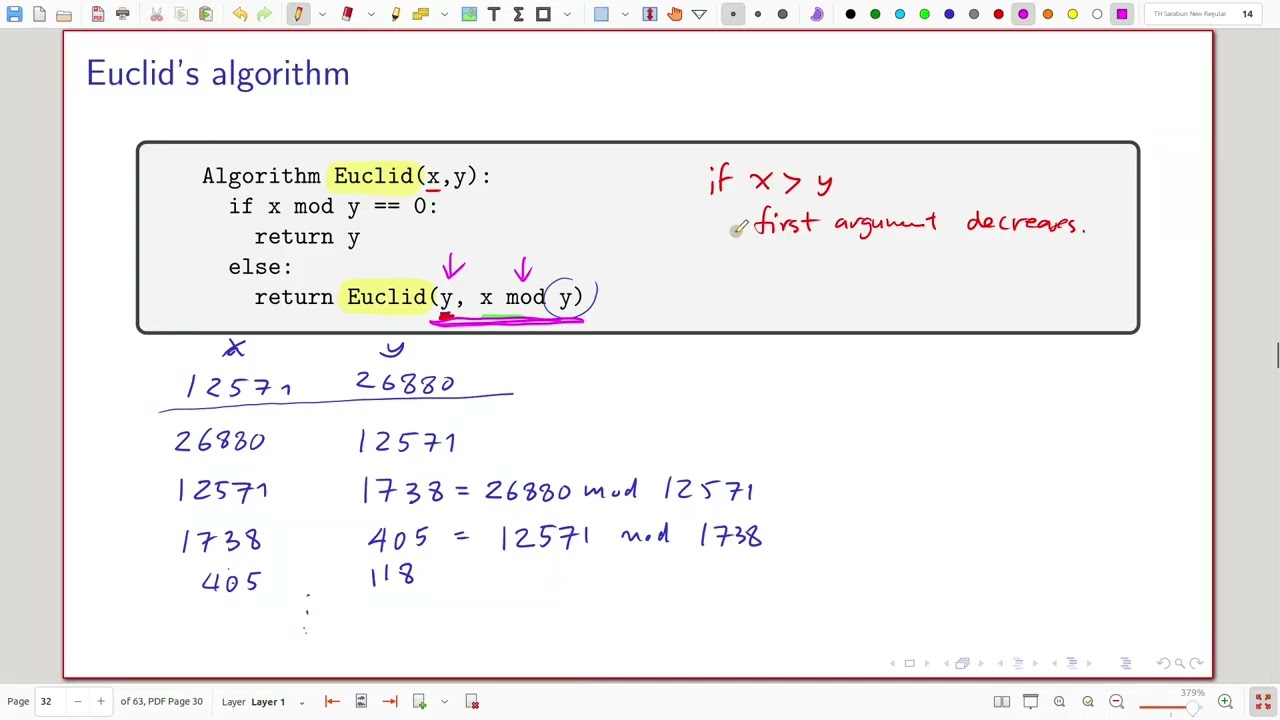 TH Sarabun New Regular 14
Euclid's algorithm
Algorithm Euclid(x,y):
if x mod y == 0:
return y
else:
return Euclid(y, x mod y)
if x > y
first argument decreases.
x y
12571 26880
26880 12571
12571 1738 = 26880 mod 12571
1738 405 = 12571 mod 1738
405 118
⋮
379%
Page 32 of 63, PDF Page 30 Layer Layer 1